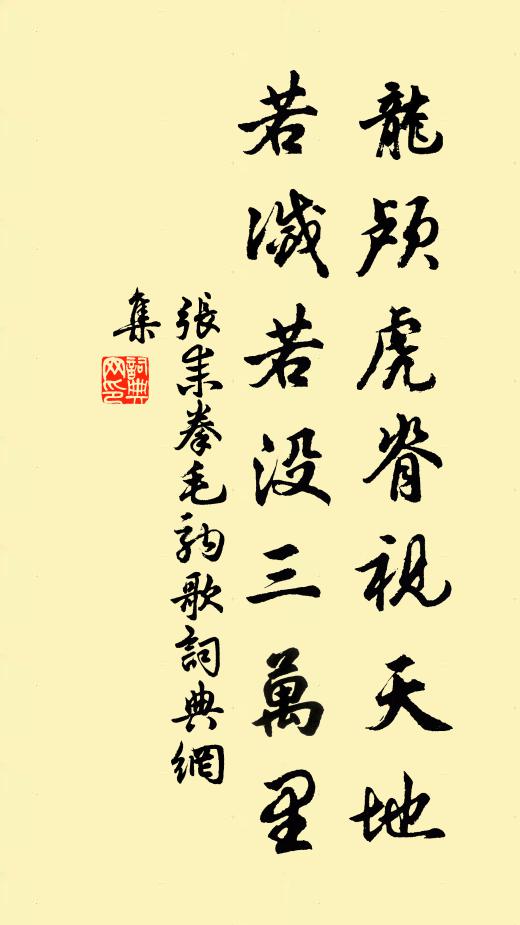 龍颅虎脊視天地
若滅若没三萬里
張耒拳毛䯄歌詞典網
集
詞典
网印